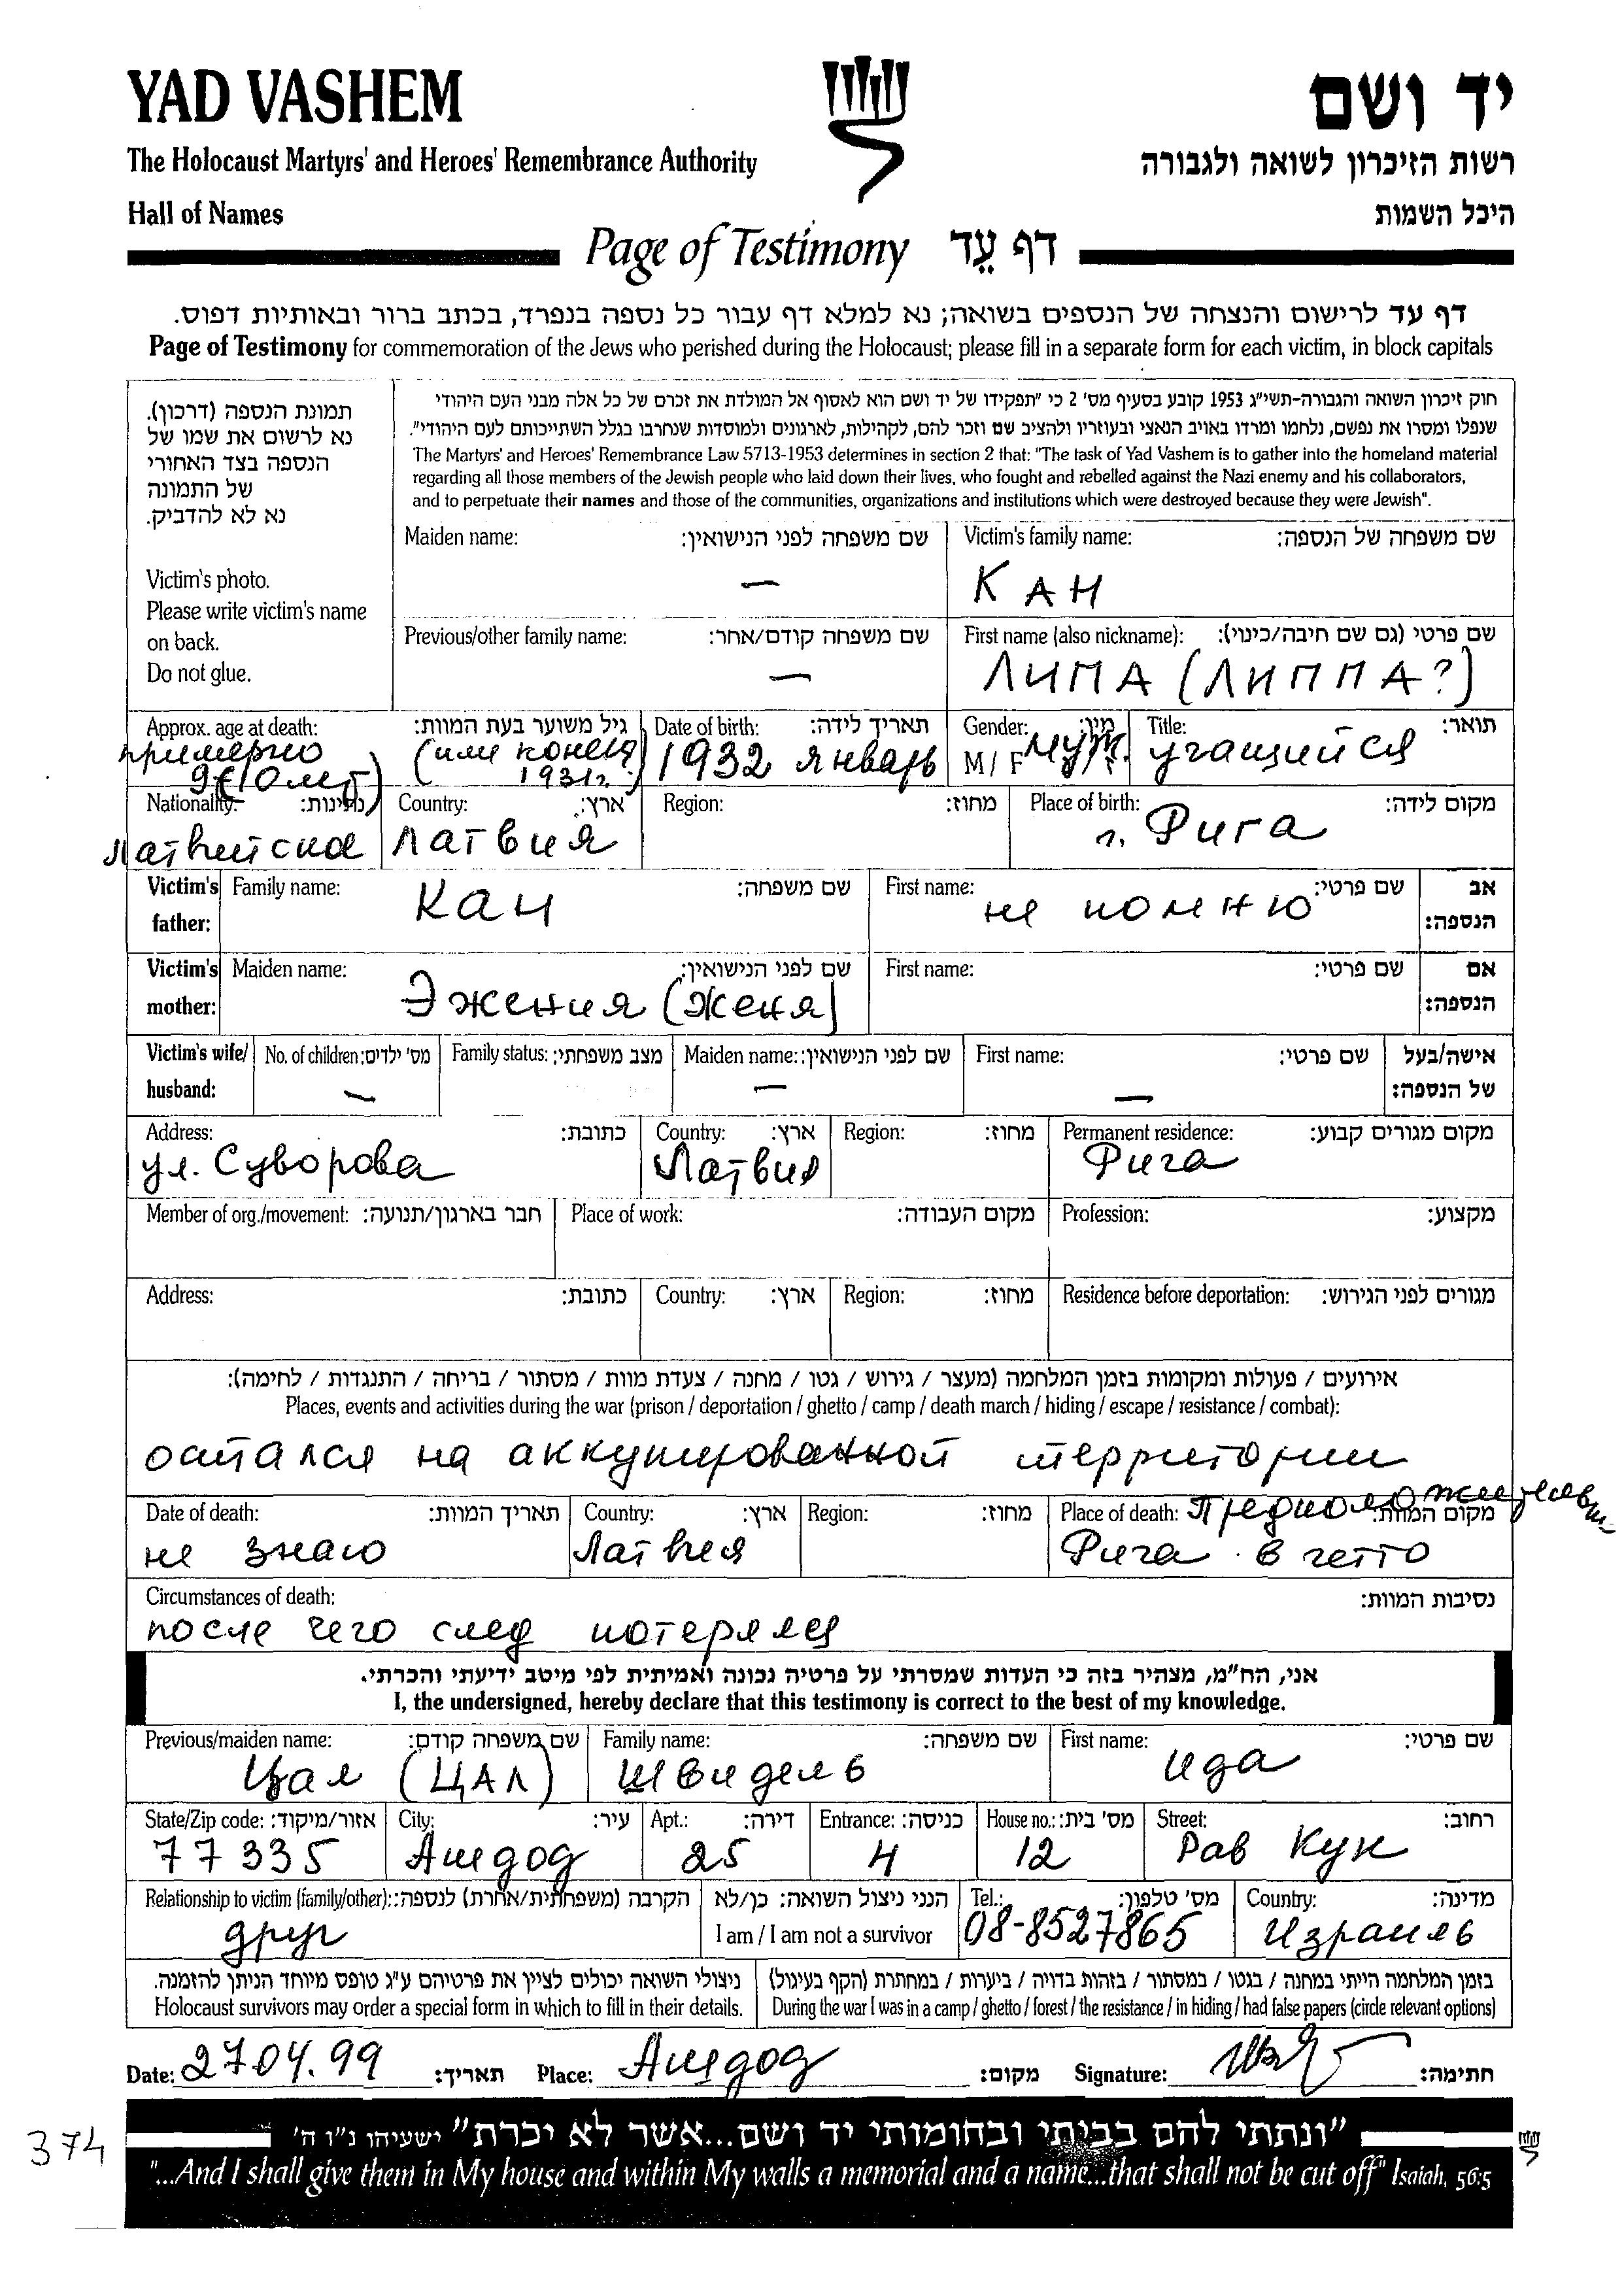 YAD VASHEM
יד ושם
The Holocaust Martyrs' and Heroes' Remembrance Authority
רשות הזיכרון לשואה ולגבורה
Hall of Names
היכל השמות
Page of Testimony דף עֵד
דף עד לרישום והנצחה של הנספים בשואה; נא למלא דף עבור כל נספה בנפרד, בכתב ברור ובאותיות דפוס.
Page of Testimony for commemoration of the Jews who perished during the Holocaust; please fill in a separate form for each victim, in block capitals
תמונת הנספה (דרכון).
נא לרשום את שמו של
הנספה בצד האחורי
של התמונה
נא לא להדביק.
Victim's photo.
Please write victim's name
on back.
Do not glue.
חוק זיכרון השואה והגבורה-תשי"ג 1953 קובע בסעיף מס' 2 כי "תפקידו של יד ושם הוא לאסוף אל המולדת את זכרם של כל אלה מבני העם היהודי
שנפלו ומסרו את נפשם, נלחמו ומרדו באויב הנאצי ובעוזריו ולהציב שם וזכר להם, לקהילות, לארגונים ולמוסדות שנחרבו בגלל השתייכותם לעם היהודי".
The Martyrs' and Heroes' Remembrance Law 5713-1953 determines in section 2 that: "The task of Yad Vashem is to gather into the homeland material
regarding all those members of the Jewish people who laid down their lives, who fought and rebelled against the Nazi enemy and his collaborators,
and to perpetuate their names and those of the communities, organizations and institutions which were destroyed because they were Jewish".
Maiden name: שם משפחה לפני הנישואין: Victim's family name: שם משפחה של הנספה:
— КАН
Previous/other family name: שם משפחה קודם/אחר: First name (also nickname): שם פרטי (גם שם חיבה/כינוי):
— ЛИПА (ЛИППА?)
Approx. age at death: גיל משוער בעת המוות: Date of birth: תאריך לידה: Gender: מין: Title: תואר:
примерно (или конец 1932 январь M / F муж. учащийся
9(10 лет) 1931г.)
Nationality: נתינות: Country: ארץ: Region: מחוז: Place of birth: מקום לידה:
Латвийское Латвия г. Рига
Victim's father: Family name: שם משפחה: First name: שם פרטי: אב הנספה:
Кан не помню
Victim's mother: Maiden name: שם לפני הנישואין: First name: שם פרטי: אם הנספה:
Эжения (Женя)
Victim's wife/ husband: No. of children: מס' ילדים: Family status: מצב משפחתי: Maiden name: שם לפני הנישואין: First name: שם פרטי: אישה/בעל של הנספה:
— — —
Address: כתובת: Country: ארץ: Region: מחוז: Permanent residence: מקום מגורים קבוע:
ул. Суворова Латвия Рига
Member of org./movement: חבר בארגון/תנועה: Place of work: מקום העבודה: Profession: מקצוע:
Address: כתובת: Country: ארץ: Region: מחוז: Residence before deportation: מגורים לפני הגירוש:
אירועים / פעולות ומקומות בזמן המלחמה (מעצר / גירוש / גטו / מחנה / צעדת מוות / מסתור / בריחה / התנגדות / לחימה):
Places, events and activities during the war (prison / deportation / ghetto / camp / death march / hiding / escape / resistance / combat):
остался на аккупированной территории
Date of death: תאריך המוות: Country: ארץ: Region: מחוז: Place of death: מקום המוות:
не знаю Латвия Рига в гетто
Circumstances of death: נסיבות המוות:
после чего след потерялся
אני, הח"מ, מצהיר בזה כי העדות שמסרתי על פרטיה נכונה ואמיתית לפי מיטב ידיעתי והכרתי.
I, the undersigned, hereby declare that this testimony is correct to the best of my knowledge.
Previous/maiden name: שם משפחה קודם: Family name: שם משפחה: First name: שם פרטי:
Цал (ЦАЛ) Швидель Ида
State/Zip code: אזור/מיקוד: City: עיר: Apt.: דירה: Entrance: כניסה: House no.: מס' בית: Street: רחוב:
77335 Ашдод 25 4 12 Рав Кук
Relationship to victim (family/other): הקרבה (משפחתית/אחרת) לנספה: הנני ניצול השואה: כן/לא Tel.: מס' טלפון: Country: מדינה:
друг I am / I am not a survivor 08-8527865 Израиль
ניצולי השואה יכולים לציין את פרטיהם ע"ג טופס מיוחד הניתן להזמנה. בזמן המלחמה הייתי במחנה / בגטו / במסתור / בזהות בדויה / ביערות / במחתרת (הקף בעיגול)
Holocaust survivors may order a special form in which to fill in their details. During the war I was in a camp / ghetto / forest / the resistance / in hiding / had false papers (circle relevant options)
Date: 27.04.99 תאריך: Place: Ашдод מקום: Signature: חתימה:
374
"ונתתי להם בביתי ובחומותי יד ושם...אשר לא יכרת" ישעיהו נ"ו ה'
"...And I shall give them in My house and within My walls a memorial and a name...that shall not be cut off" Isaiah, 56:5